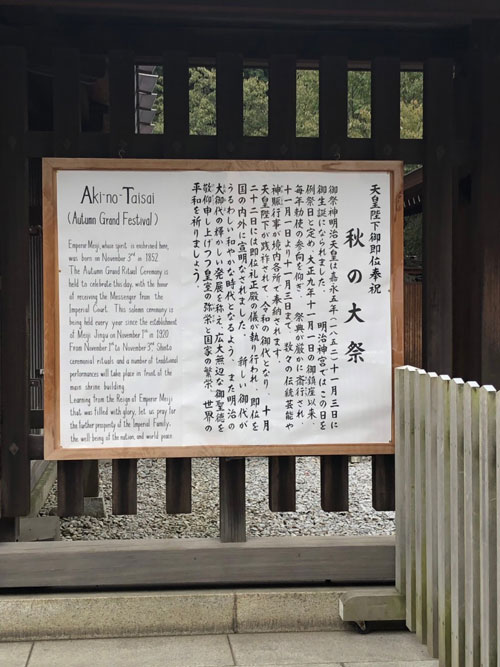 Aki-no-Taisai
(Autumn Grand Festival)
Emperor Meiji, whose spirit is enshrined here,
was born on November 3rd in 1852.
The Autumn Grand Ritual Ceremony is
held to celebrate this day, with the honor
of receiving the Messenger from the
Imperial Court. This solemn ceremony is
being held every year since the establishment
of Meiji Jingu on November 1st in 1920.
From November 1st to November 3rd, Shinto
ceremonial rituals and a number of traditional
performances will take place in front of the
main shrine building.
Learning from the Reign of Emperor Meiji
that was filled with glory, let us pray for
the further prosperity of the Imperial Family,
the well being of the nation, and world peace.
天皇陛下御即位奉祝
秋の大祭
御祭神明治天皇は嘉永五年(一八五二)十一月三日に
御生誕になられました。 明治神宮ではこの日を
例祭日と定め、大正九年十一月一日の御鎮座以来、
毎年勅使の参向を仰ぎ、祭典が厳かに斎行され、
十一月一日より十一月三日まで、数々の伝統芸能や
神賑行事が境内各所で奉納されます。
天皇陛下が践祚されて、令和の御代となり、十月
二十二日には即位礼正殿の儀が執り行われ、即位を
国の内外に宣明なされました。 新しい御代が
うるわしい和やかな時代となるよう、また明治の
大御代の輝かしい発展を称え、広大無辺な御聖徳を
敬仰申し上げつつ皇室の弥栄と国家の繁栄、世界の
平和を祈りましょう。